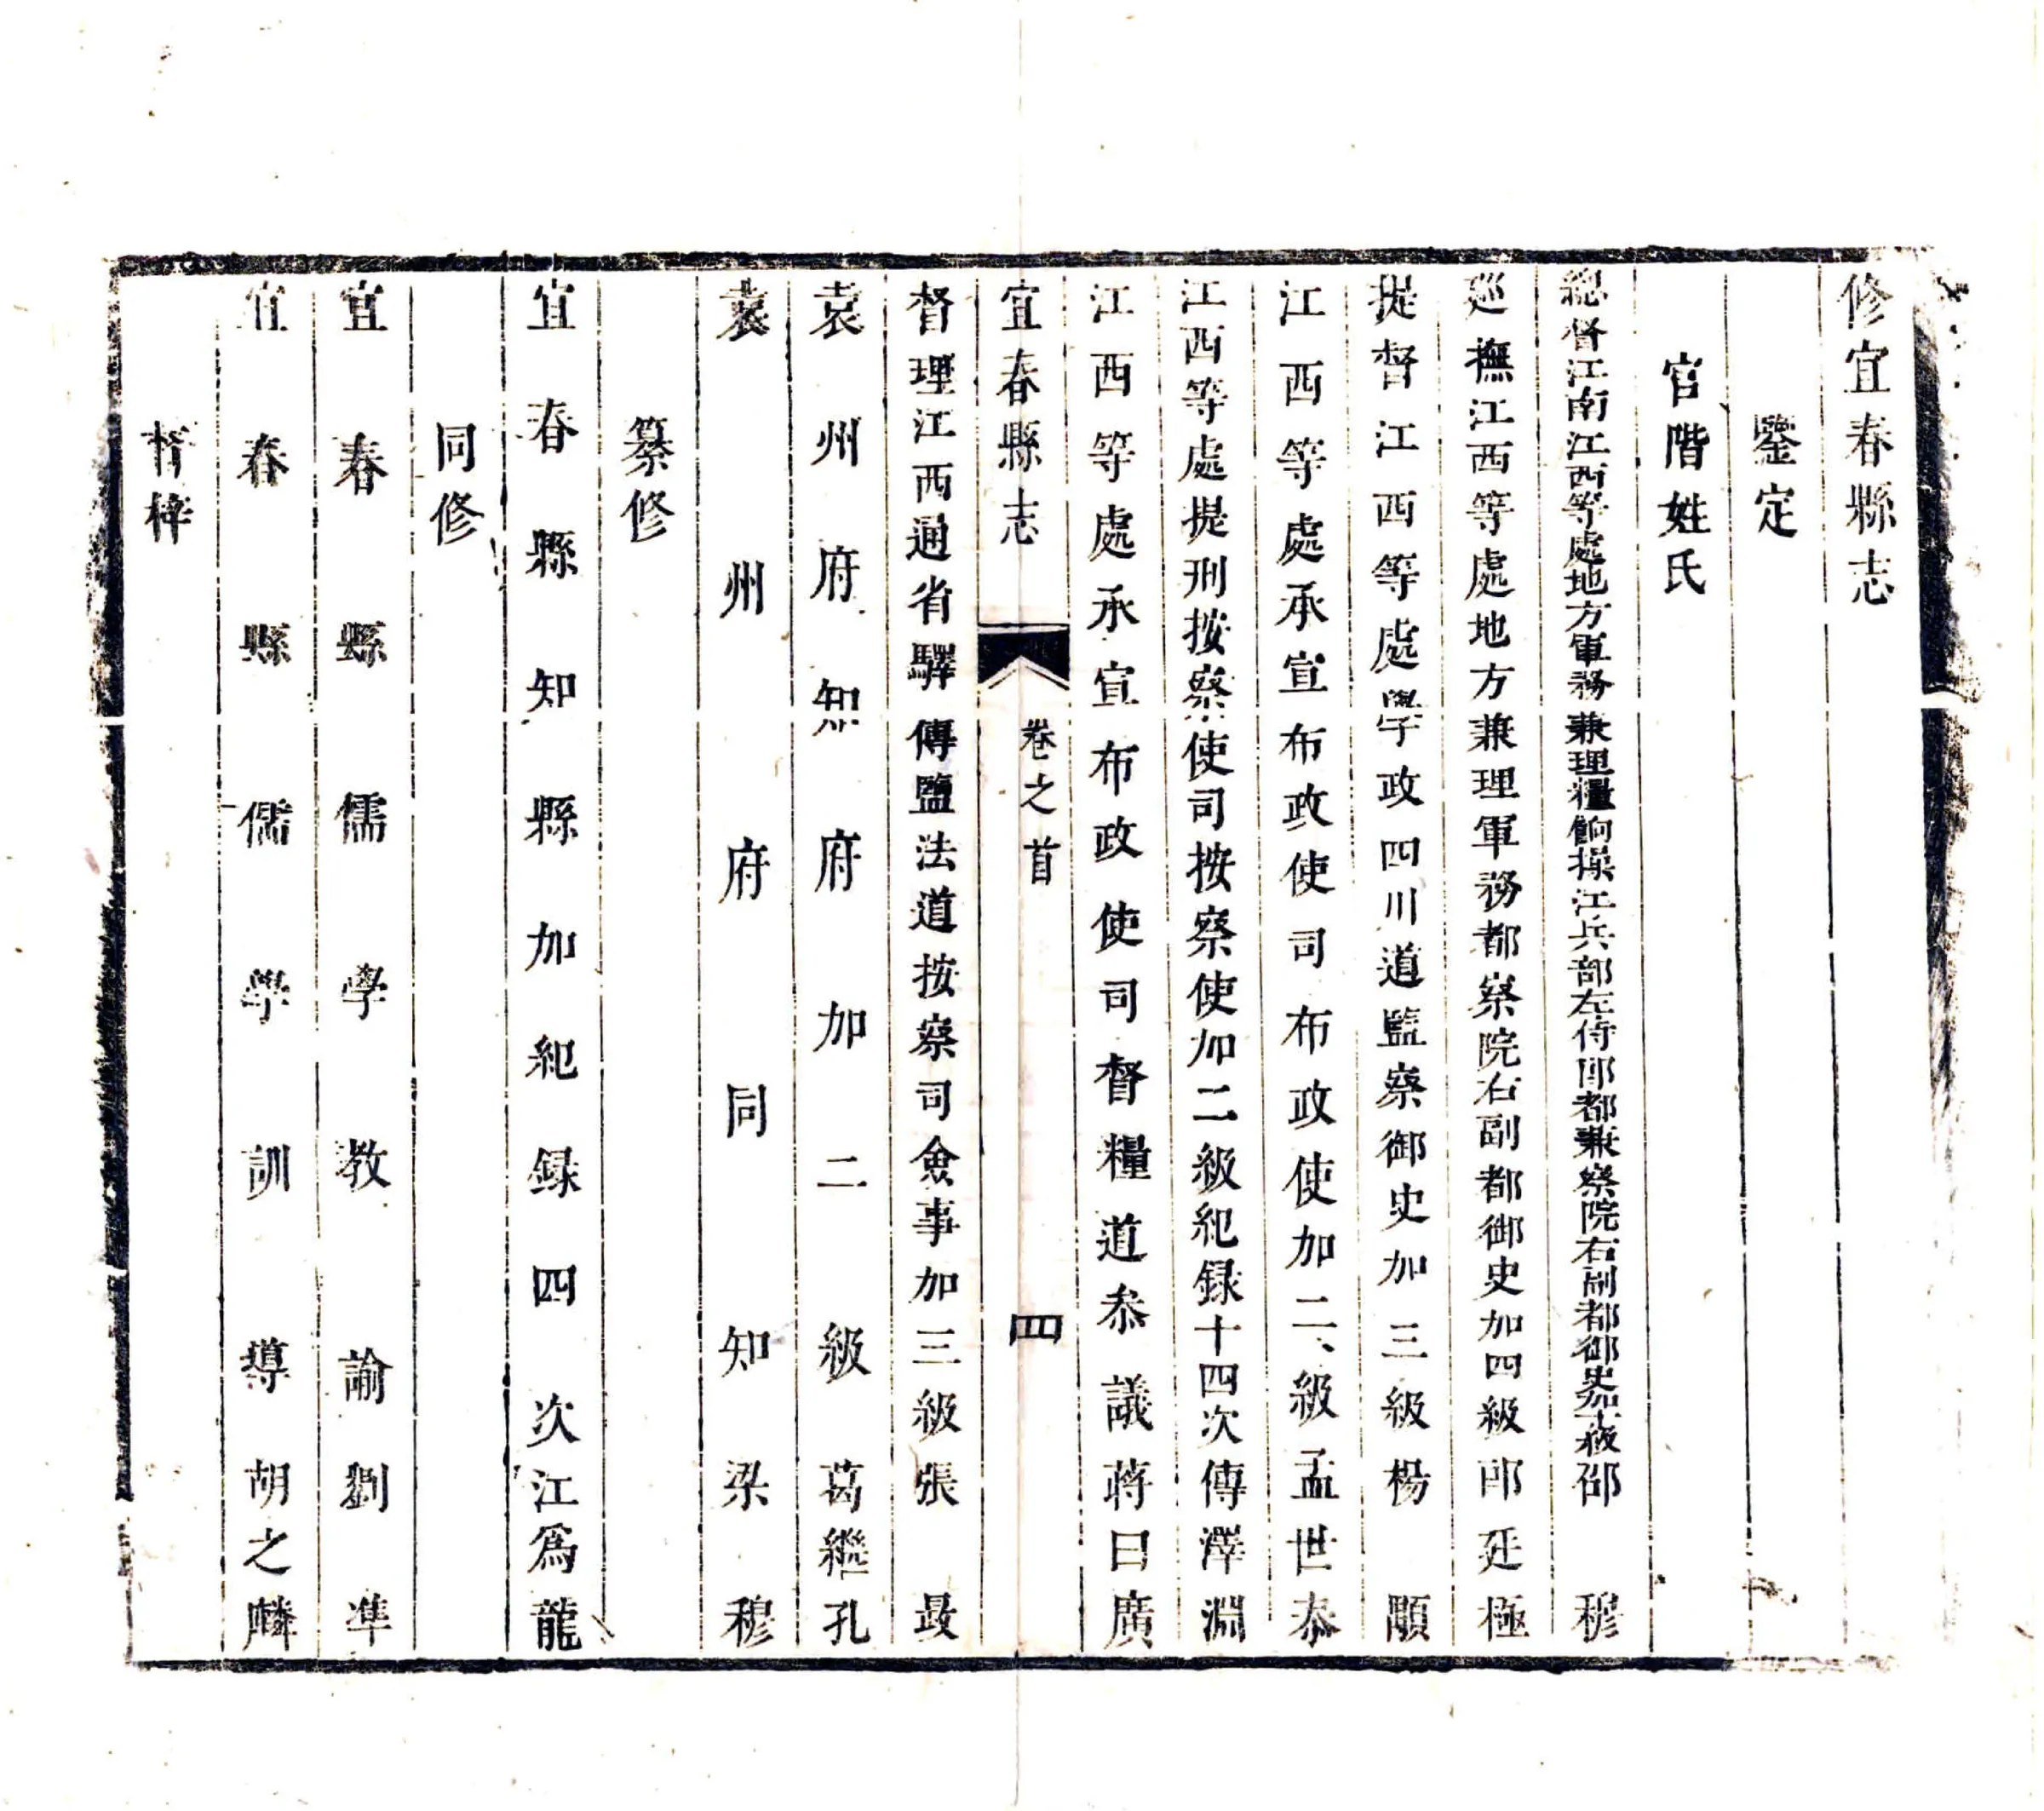 修宜春縣志
鑒定
官階姓氏
總督江南江西等處地方軍務兼理糧餉操江兵部左侍郎都兼察院右副都御史加十級邵穆
巡撫江西等處地方兼理軍務都察院右副都御史加四級郎廷極
提督江西等處學政四川道監察御史加三級楊顒
江西等處承宣布政使司布政使加二級孟世泰
江西等處提刑按察使司按察使加二級紀録十四次傅澤淵
江西等處承宣布政使司督糧道叅議蔣曰廣
宜春縣志 卷之首 四
督理江西通省驛傳鹽法道按察司僉事加三級張㝡
袁州府知府加二級葛繼孔
袁州府同知梁穆
纂修
宜春縣知縣加紀録四次江爲龍
同修
宜春縣儒學教諭劉凖
宜春縣儒學訓導胡之麟
督梓